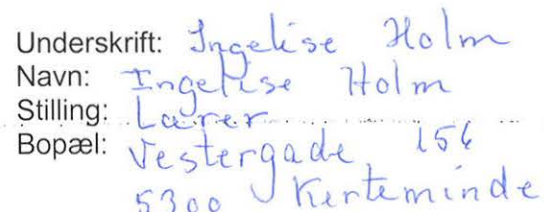 Underskrift: Ingelise Holm
Navn: Ingelise Holm
Stilling: Lærer
Bopæl: Vestergade 156
5300 Kerteminde